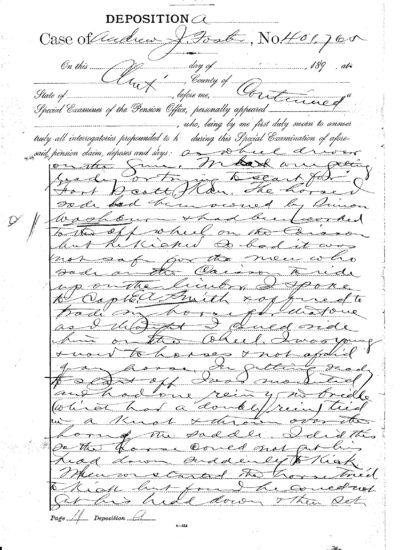 DEPOSITION A
Case of Andrew J. Foster, No. 401,768
On this day of 189 , at
Claimt County of
State of before me, Continued a
Special Examiner of the Pension Office, personally appeared
, who, being by me first duly sworn to answer
truly all interrogatories propounded to h during this Special Examination of afore-
said pension claim, deposes and says: as wheel driver
on the Gun. We were getting
ready to start for
Fort Scott Kan. The horse I
rode had been owned by Simon
Washburn & had been worked
to the off wheel on the Caisson
but he kicked so bad it was
not safe for the men who
rode on the Caisson to ride
up on the limber. I spoke
to Capt. A. Smith & offered to
trade my horse for that one
as I thought I could ride
him on the wheel. I was young
& used to horses & not afraid
of any horse. In getting ready
to start off I was mounted
and had one rein of the bridle
(which had a double rein) tied
in a knot & thrown over the
horn of the saddle. I did this
so the horse could not get his
head down suddenly to kick
When we started the horse tried
to kick but found he could not
get his head down & then
Page 4 Deposition A